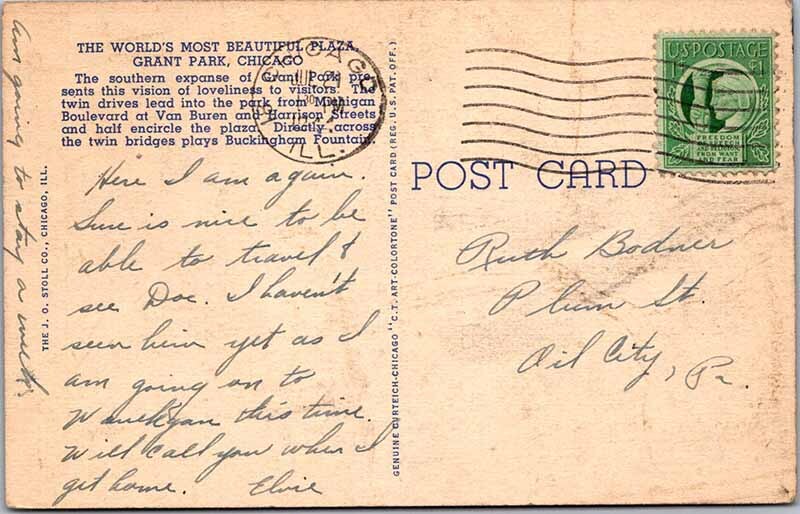 THE WORLD'S MOST BEAUTIFUL PLAZA,
GRANT PARK, CHICAGO
The southern expanse of Grant Park pre-
sents this vision of loveliness to visitors. The
twin drives lead into the park from Michigan
Boulevard at Van Buren and Harrison Streets
and half encircle the plaza. Directly across
the twin bridges plays Buckingham Fountain.
Here I am again.
Sure is nice to be
able to travel &
see Doc. I haven't
seen him yet as I
am going on to
Waukegan this time.
Will call you when I
get home. Elvie
Am going to stay a week.
THE J. O. STOLL CO., CHICAGO, ILL.
GENUINE CURTEICH-CHICAGO "C.T. ART-COLORTONE" POST CARD (REG. U.S. PAT. OFF.)
CHICAGO
ILL.
U.S. POSTAGE
1
FREEDOM
OF SPEECH
AND RELIGION,
FROM WANT
AND FEAR
POST CARD
Ruth Bodner
Plum St.
Oil City, Pa.